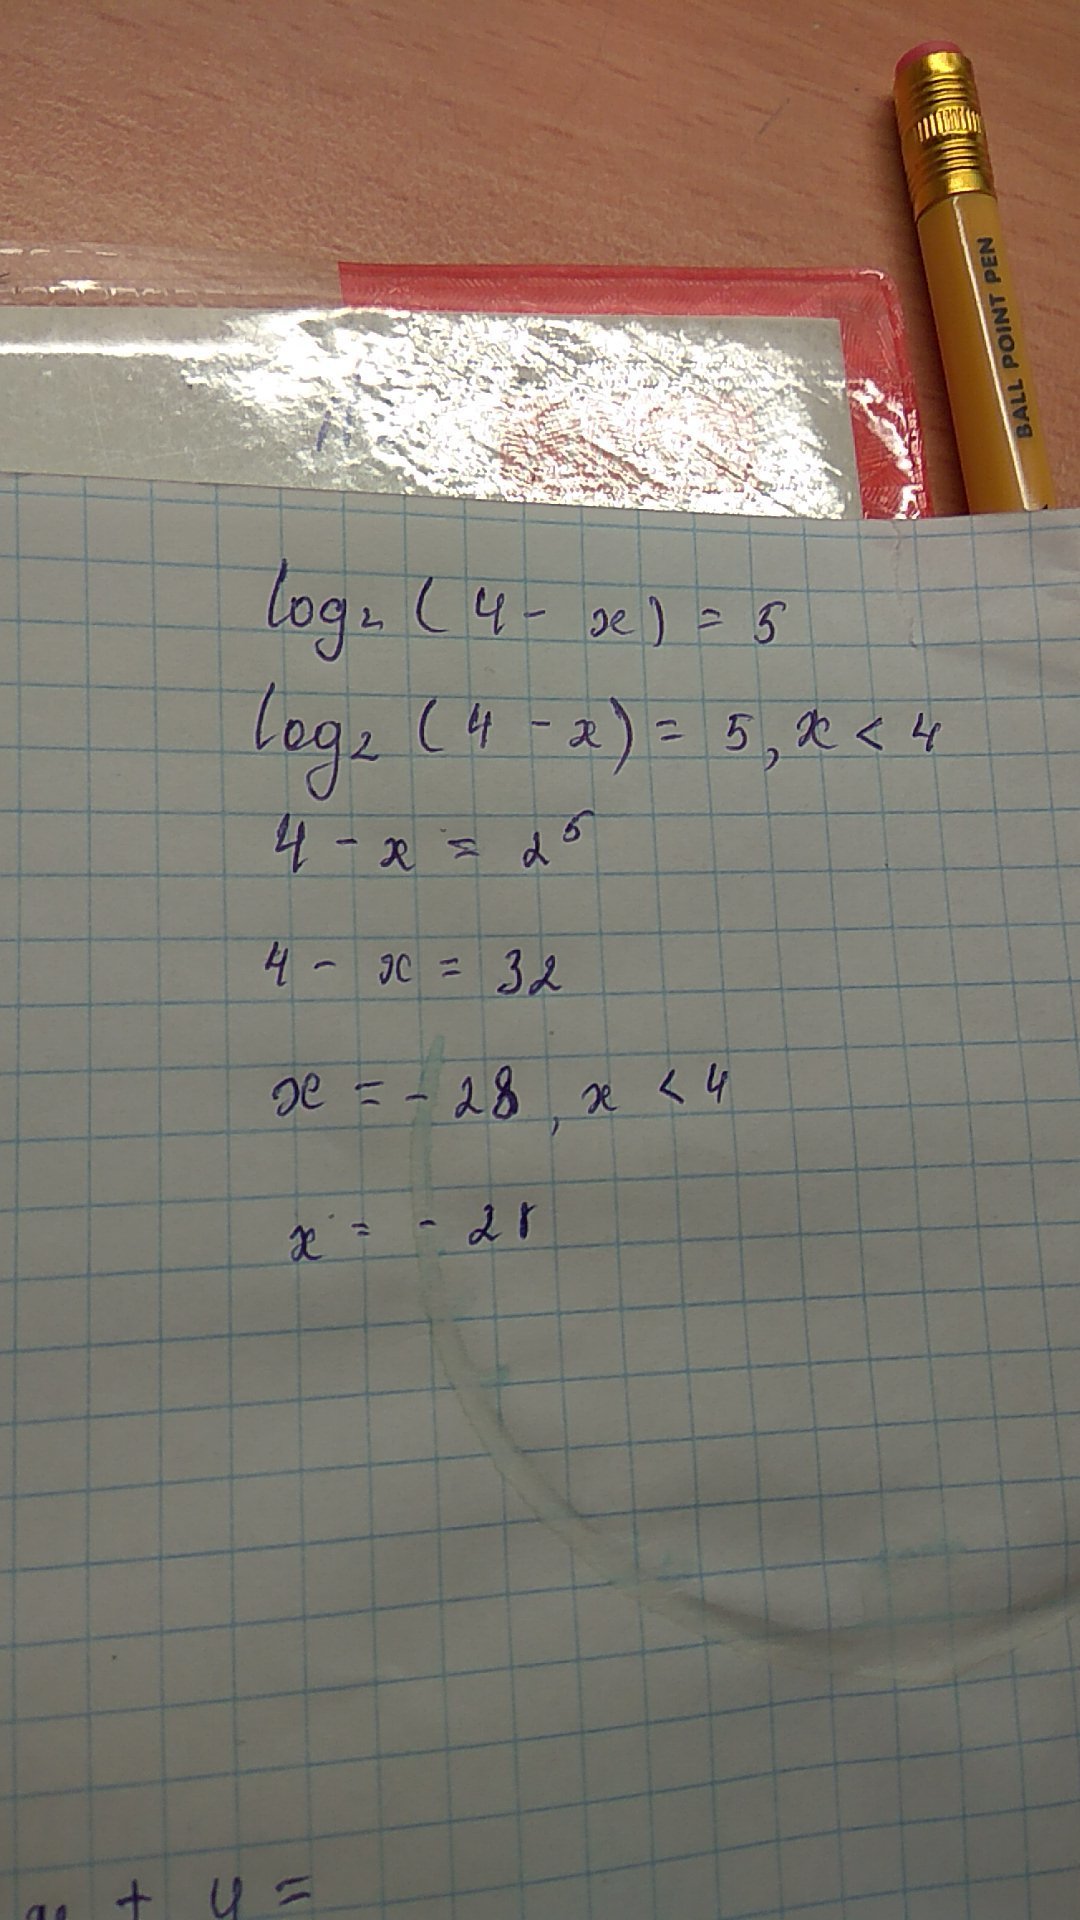 BALL POINT PEN
log₂ (4 - x) = 5
log₂ (4 - x) = 5, x < 4
4 - x = 2⁵
4 - x = 32
x = - 28, x < 4
x = - 28
+ y =